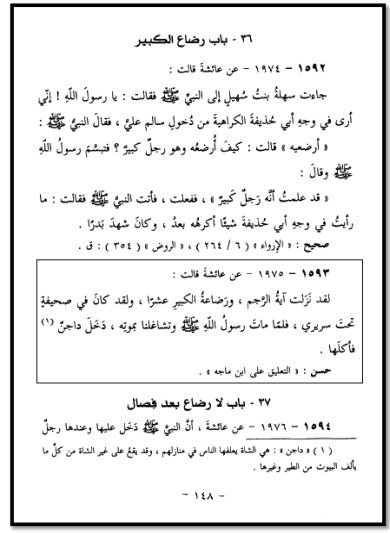 ٣٦ - باب رضاع الكبير
١٥٩٢ - ١٩٧٤ - عن عائشة قالت :
جاءت سهلةُ بنتُ سُهيلٍ إلى النبيِّ ﷺ فقالت : يا رسولَ اللّهِ ! إنّي
أرى في وجهِ أبي حُذيفةَ الكراهيةَ من دُخولِ سالم عليَّ ، فقالَ النبيُّ ﷺ :
« أرضعيه » قالت : كيفَ أُرضعُه وهو رجلٌ كبيرٌ ؟ فتبسَّمَ رسولُ اللّهِ
ﷺ وقالَ :
« قد علمتُ أنَّه رَجلٌ كَبيرٌ » ، ففعلت ، فأتت النبيَّ ﷺ فقالت : ما
رأيتُ في وجهِ أبي حُذيفةَ شيئًا أكرهُه بعدُ ، وكانَ شهدَ بَدرًا .
صحيح : « الإرواء » ( ٦ / ٢٦٤ ) ، « الروض » ( ٣٥٤ ) : ق .
١٥٩٣ - ١٩٧٥ - عن عائشةَ قالت :
لقد نَزَلت آيةُ الرَّجم ، ورَضاعةُ الكبيرِ عشرًا ، ولقد كانَ في صحيفةٍ
تحتَ سريري ، فلمّا ماتَ رسولُ اللّهِ ﷺ وتشاغلنا بموتِه ، دَخَلَ داجنٌ (١)
فأكلَها .
حسن : « التعليق على ابن ماجه » .
٣٧ - باب لا رضاع بعد فصال
١٥٩٤ - ١٩٧٦ - عن عائشةَ ، أنَّ النبيَّ ﷺ دَخَل عليها وعندها رجلٌ
( ١ ) « داجن » : هي الشاة يعلفها الناس في منازلهم ، وقد يقعُ على غير الشاة من كلِّ ما
يألف البيوت من الطير وغيرها .
- ١٤٨ -